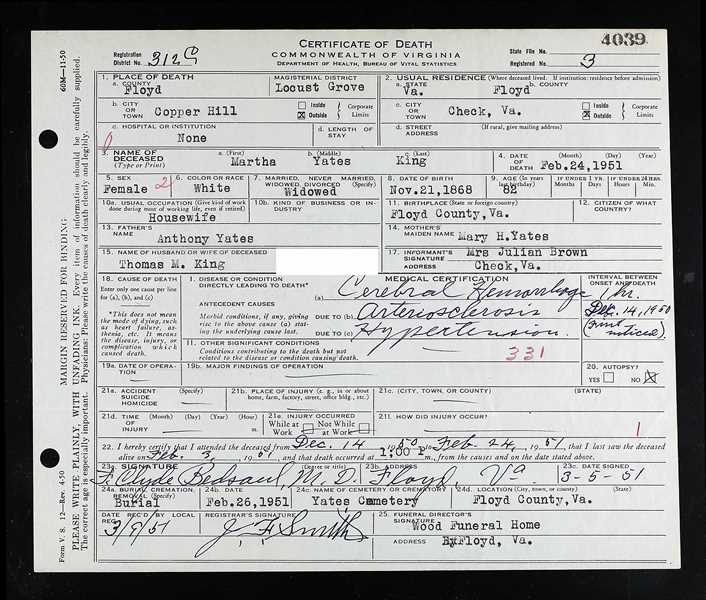 4039
CERTIFICATE OF DEATH
COMMONWEALTH OF VIRGINIA
DEPARTMENT OF HEALTH, BUREAU OF VITAL STATISTICS
Registration District No. 312C
State File No.
Registered No. 3
1. PLACE OF DEATH
a. COUNTY Floyd
MAGISTERIAL DISTRICT Locust Grove
2. USUAL RESIDENCE (Where deceased lived. If institution: residence before admission)
a. STATE Va.
b. COUNTY Floyd
b. CITY OR TOWN Copper Hill
Inside
Outside
Corporate Limits
c. CITY OR TOWN Check, Va.
Inside
Outside
Corporate Limits
c. HOSPITAL OR INSTITUTION None
d. LENGTH OF STAY
d. STREET ADDRESS (If rural, give mailing address)
3. NAME OF DECEASED (Type or Print)
a. (First) Martha
b. (Middle) Yates
c. (Last) King
4. DATE OF DEATH (Month) (Day) (Year) Feb.24,1951
5. SEX Female 2
6. COLOR OR RACE White
7. MARRIED, NEVER MARRIED, WIDOWED, DIVORCED (Specify) Widowed
8. DATE OF BIRTH Nov.21,1868
9. AGE (In years last birthday) 82
IF UNDER 1 YR. Months Days
IF UNDER 24 HRS. Hours Min.
10a. USUAL OCCUPATION (Give kind of work done during most of working life, even if retired) Housewife
10b. KIND OF BUSINESS OR INDUSTRY
11. BIRTHPLACE (State or foreign country) Floyd County,Va.
12. CITIZEN OF WHAT COUNTRY?
13. FATHER'S NAME Anthony Yates
14. MOTHER'S MAIDEN NAME Mary H.Yates
15. NAME OF HUSBAND OR WIFE OF DECEASED Thomas M. King
17. INFORMANT'S SIGNATURE Mrs Julian Brown
ADDRESS Check,Va.
18. CAUSE OF DEATH
Enter only one cause per line for (a), (b), and (c)
*This does not mean the mode of dying, such as heart failure, asthenia, etc. It means the disease, injury, or complication which caused death.
MEDICAL CERTIFICATION
INTERVAL BETWEEN ONSET AND DEATH
I. DISEASE OR CONDITION DIRECTLY LEADING TO DEATH* (a) Cerebral Hemorrhage 1 hr.
ANTECEDENT CAUSES
Morbid conditions, if any, giving rise to the above cause (a) stating the underlying cause last.
DUE TO (b) Arteriosclerosis Dec. 14, 1950
DUE TO (c) Hypertension (first noticed).
II. OTHER SIGNIFICANT CONDITIONS
Conditions contributing to the death but not related to the disease or condition causing death.
331
19a. DATE OF OPERATION
19b. MAJOR FINDINGS OF OPERATION
20. AUTOPSY?
YES NO
21a. ACCIDENT SUICIDE HOMICIDE (Specify)
21b. PLACE OF INJURY (e. g., in or about home, farm, factory, street, office bldg., etc.)
21c. (CITY, TOWN, OR COUNTY) (STATE)
21d. TIME OF INJURY (Month) (Day) (Year) (Hour) m.
21e. INJURY OCCURRED
While at Work
Not While at Work
21f. HOW DID INJURY OCCUR?
1
22. I hereby certify that I attended the deceased from Dec. 14 1950 to Feb. 24, 1951, that I last saw the deceased
alive on Feb. 3, 1951, and that death occurred at 1:00 P m., from the causes and on the date stated above.
23a. SIGNATURE (Degree or title) F. Clyde Bedsaul, M. D.
23b. ADDRESS Floyd, Va
23c. DATE SIGNED 3-5-51
24a. BURIAL, CREMATION, REMOVAL (Specify) Burial
24b. DATE Feb.26,1951
24c. NAME OF CEMETERY OR CREMATORY Yates Cemetery
24d. LOCATION (City, town, or county) (State) Floyd County,Va.
DATE REC'D BY LOCAL REG. 3/9/51
REGISTRAR'S SIGNATURE J. F. Smith
25. FUNERAL DIRECTOR'S SIGNATURE Wood Funeral Home
ADDRESS Floyd, Va.
60M—11-50
Form V. S. 12—Rev. 4-50
MARGIN RESERVED FOR BINDING
PLEASE WRITE PLAINLY, WITH UNFADING INK. Every item of information should be carefully supplied.
The correct age is especially important. Physicians: Please write the causes of death clearly and legibly.